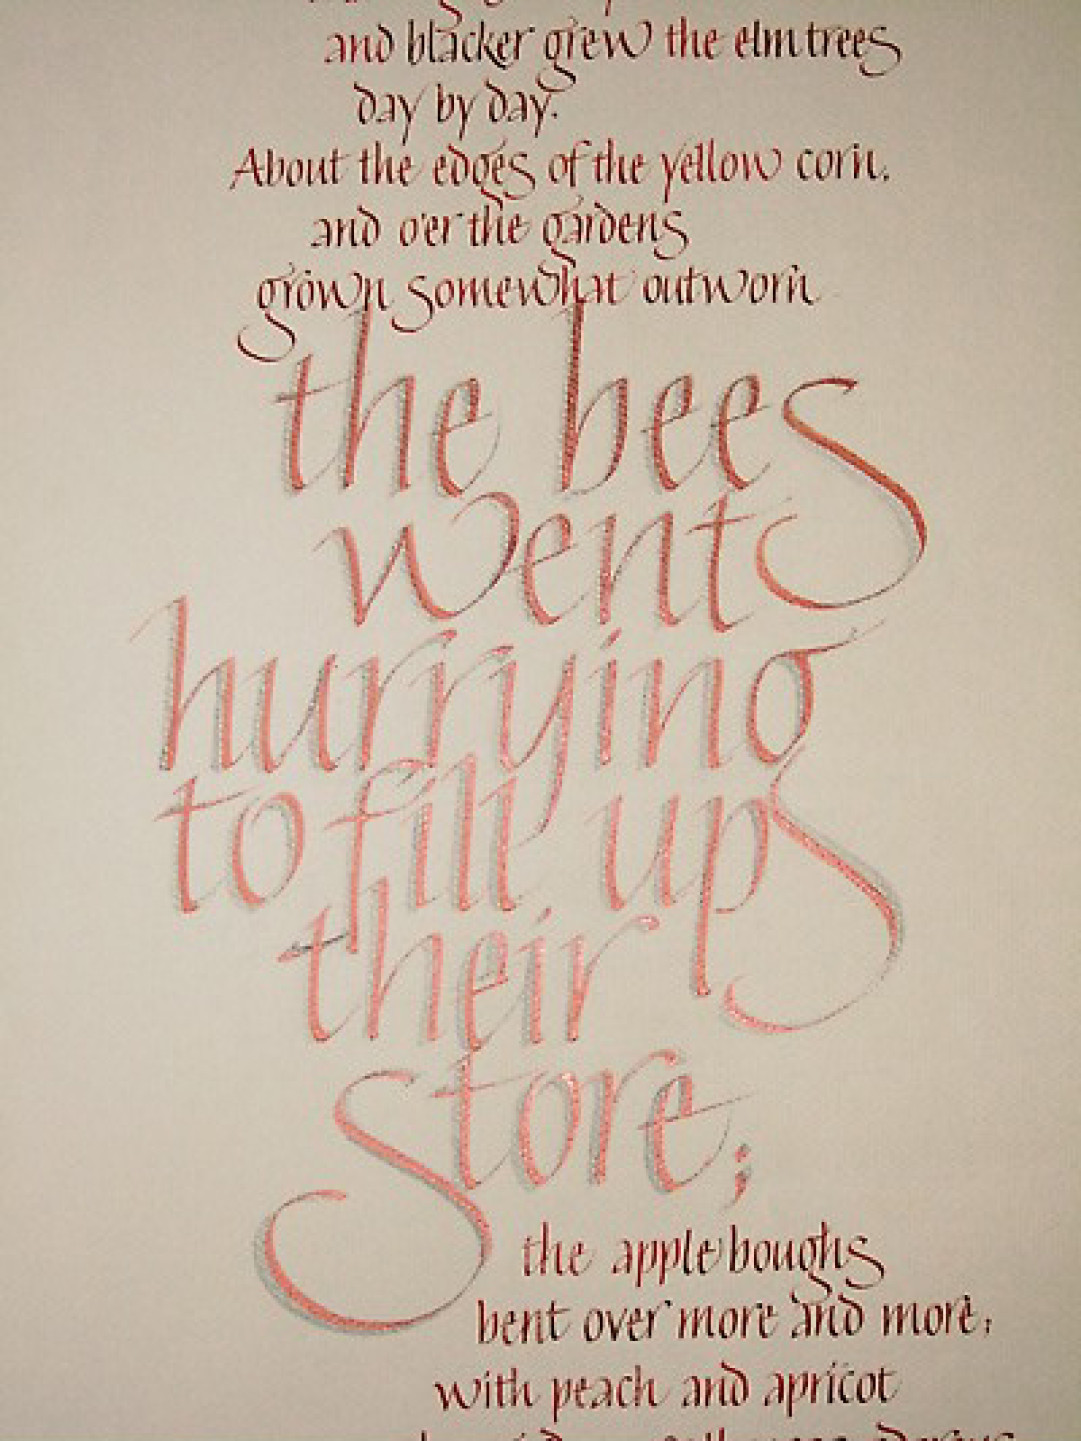 and blacker grew the elm trees
day by day.
About the edges of the yellow corn,
and o'er the gardens
grown somewhat outworn
the bees
went
hurrying
to fill up
their
store;
the apple boughs
bent over more and more;
with peach and apricot